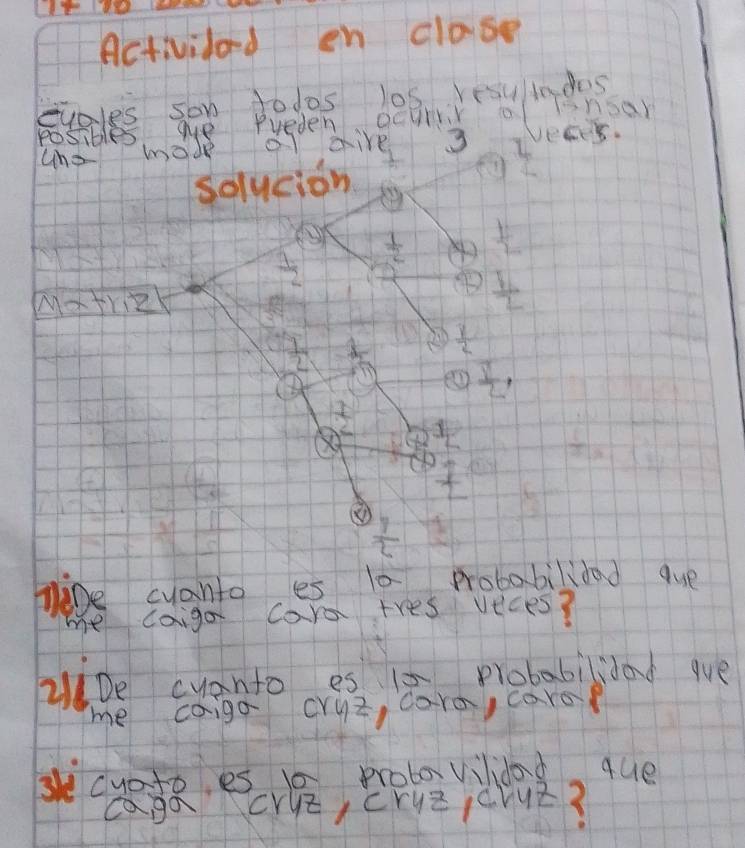 Actividad en clase
cuales son todos los resultados
posibles que pueden ocurrir al
una al aire 3 veces.
solución
Matriz
1/2
1/2
1/2
1/2
1/2
1/2
1/2
1/2
1/2
1/2
1/2
1/2
1) ¿De cuanto es la probabilidad que
me caiga cara tres veces?
2) ¿De cuanto es la probabilidad que
me caiga cruz, cara, cara?
3) ¿ cuato es la probavilidad que
caga cruz, cruz, cruz?